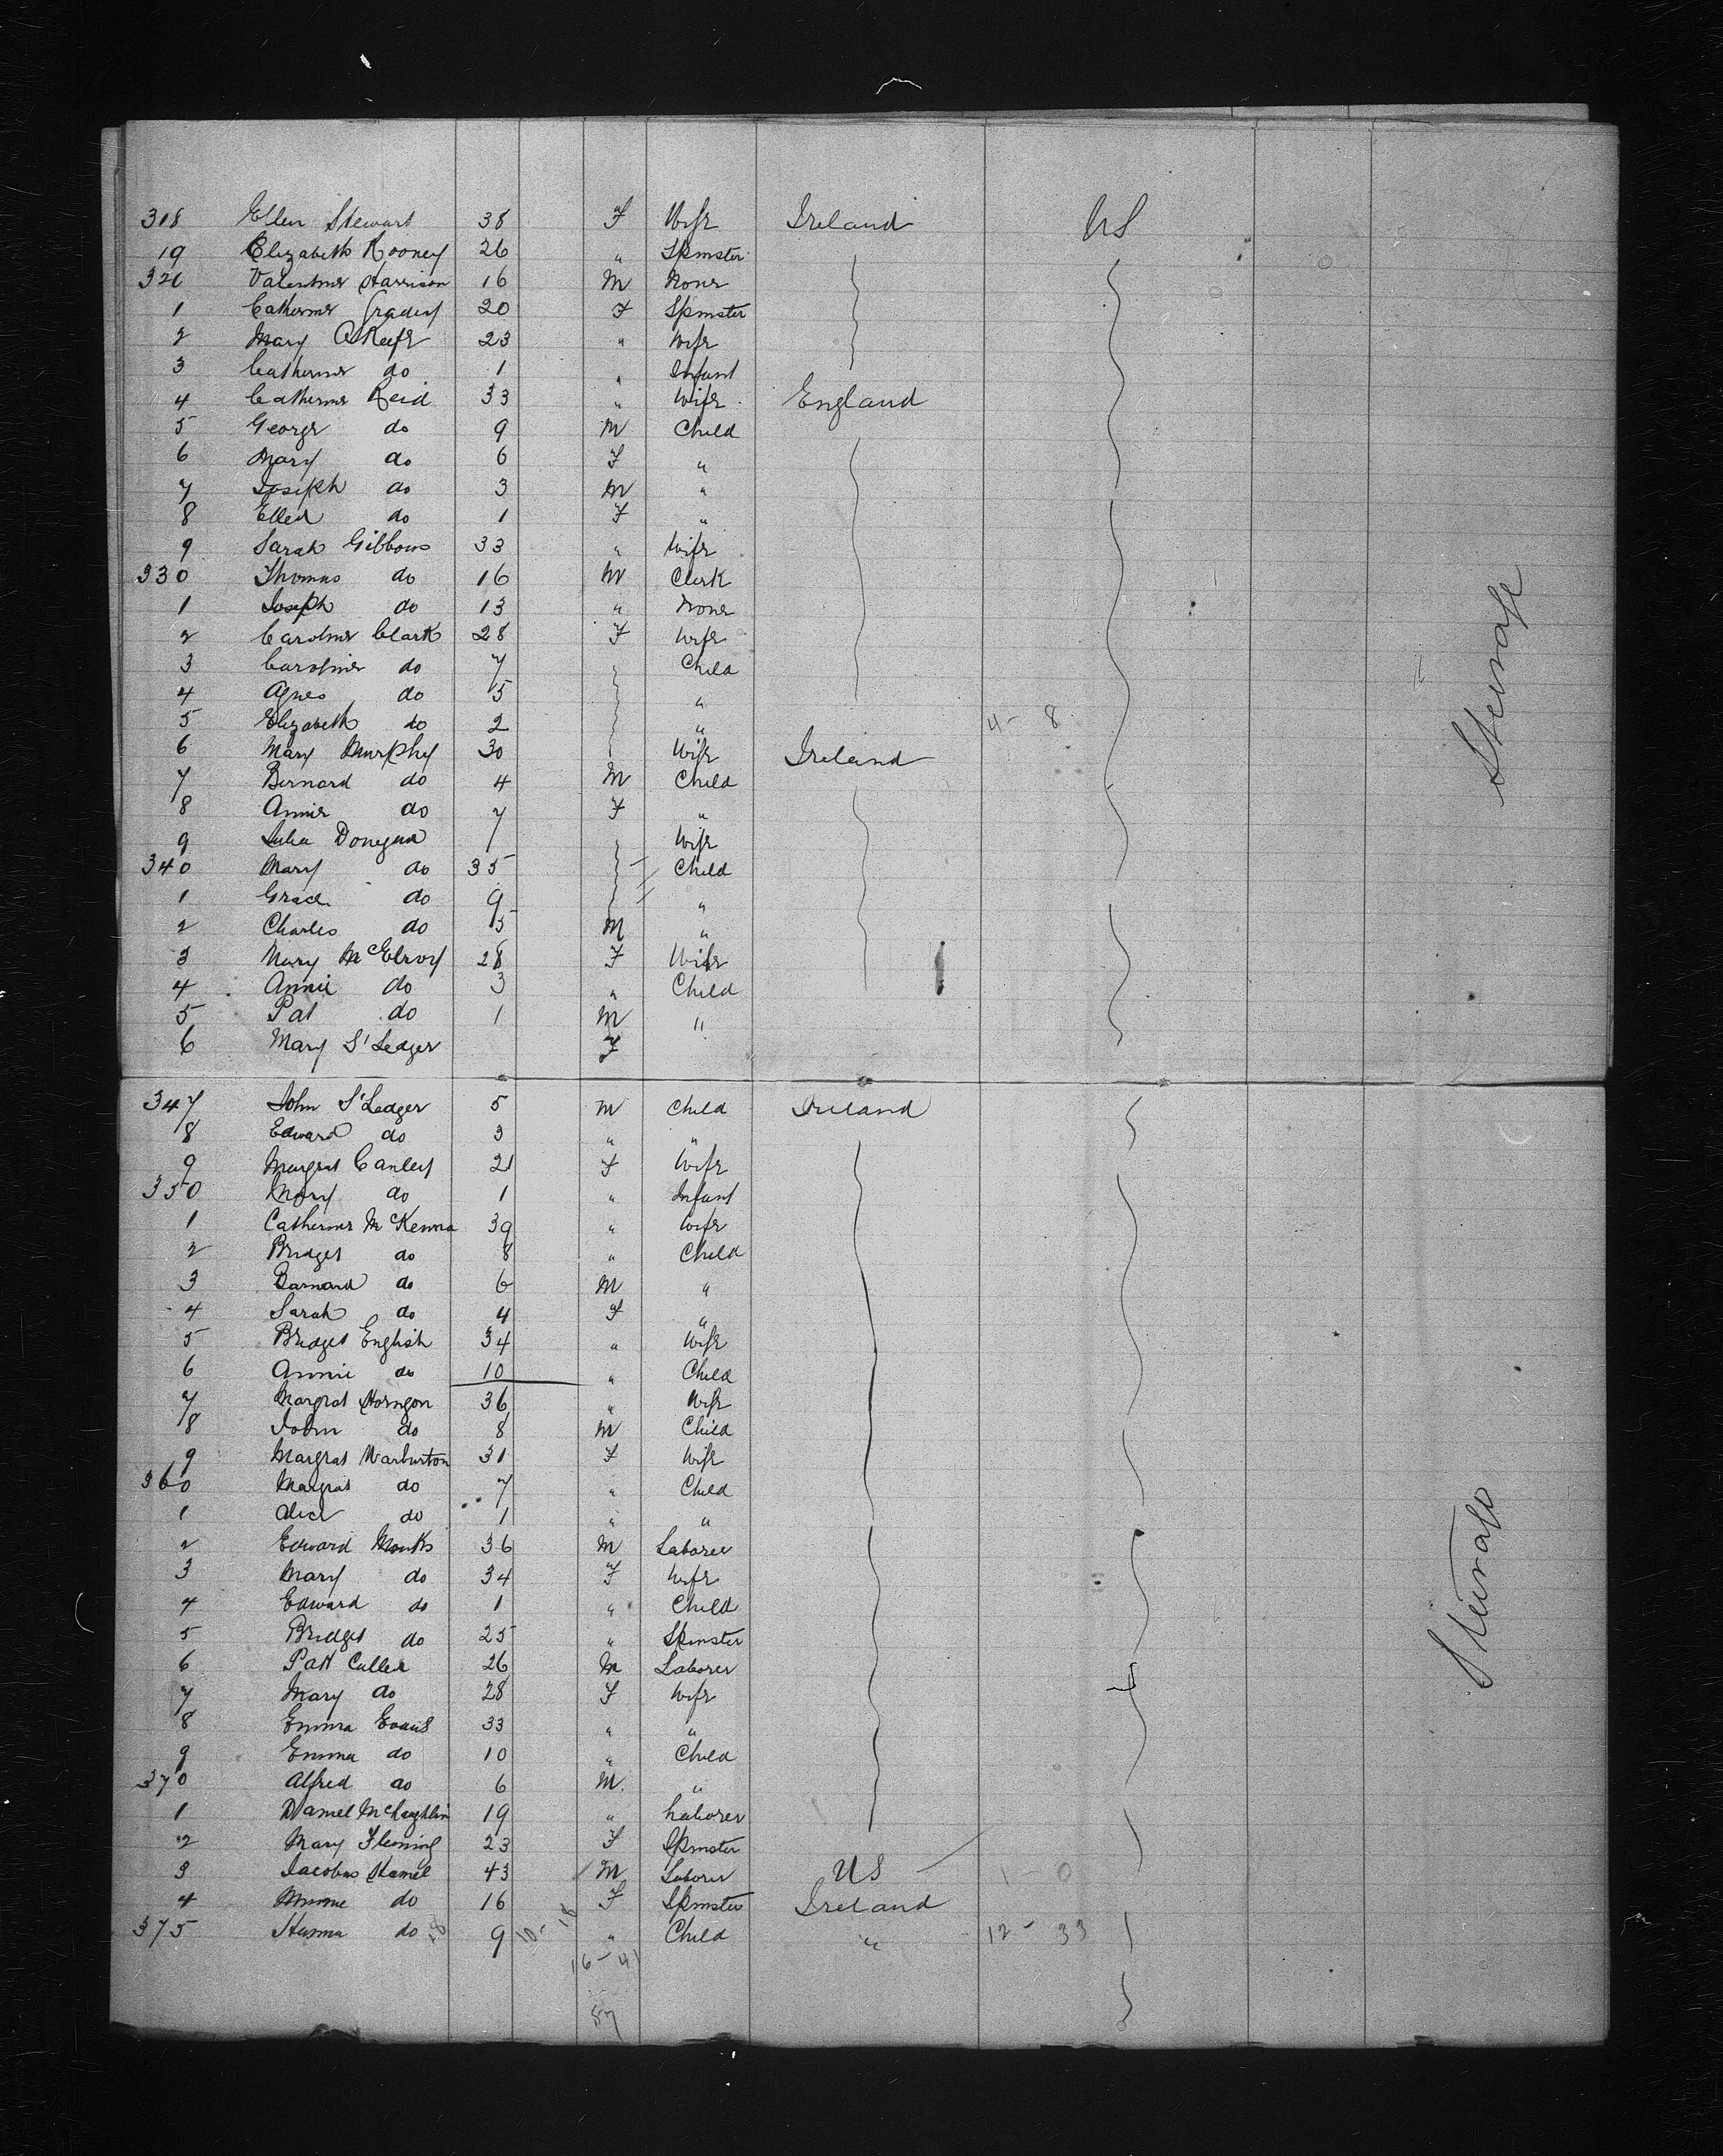 318 Ellen Stewart 38 F Wife Ireland US
19 Elizabeth Rooney 26 " Spinster
320 Valentine Harrison 16 M None
1 Catherine Grady 20 F Spinster
2 Mary O'Keefe 23 " Wife
3 Catherine do 1 " Infant
4 Catherine Reid 33 " Wife England
5 George do 9 M Child
6 Mary do 6 F "
7 Joseph do 3 M "
8 Ellen do 1 F "
9 Sarah Gibbons 33 " Wife
330 Thomas do 16 M Clerk
1 Joseph do 13 " None
2 Caroline Clark 28 F Wife
3 Caroline do 7 Child
4 Agnes do 5 "
5 Elizabeth do 2 " 4 - 8
6 Mary Murphy 30 Wife Ireland
7 Bernard do 4 M Child
8 Annie do 7 F "
9 Julia Donegan / Wife
340 Mary do 35 Child
1 Grace do 9 "
2 Charles do 5 M "
3 Mary McElroy 28 F Wife
4 Annie do 3 " Child
5 Pat do 1 M "
6 Mary St Ledger F
Steerage
347 John St Ledger 5 M Child Ireland
8 Edward do 3 " "
9 Margrat Canley 21 F Wife
350 Mary do 1 " Infant
1 Catherine McKenna 39 " Wife
2 Bridget do 8 " Child
3 Barnard do 6 M "
4 Sarah do 4 F "
5 Bridget English 34 " Wife
6 Annie do 10 " Child
7 Margrat 36 " Wife
8 John do 8 M Child
9 Margrat Warburton 31 F Wife
360 Margrat do 7 " Child
1 Alice do 1 " "
2 Edward Monks 36 M Laborer
3 Mary do 34 F Wife
4 Edward do 1 " Child
5 Bridget do 25 " Spinster
6 Patt Cullen 26 M Laborer
7 Mary do 28 F Wife
8 Emma Evans 33 " "
9 Emma do 10 " Child
370 Alfred do 6 M "
1 Daniel McLaughlin 19 " Laborer
2 Mary Fleming 23 F Spinster
3 Jacobus Hamel 43 M Laborer US 1 0
4 Minnie do 16 F Spinster Ireland
375 do 9 " Child " 12 - 33
10 - 18
16 - 41
57
Steerage